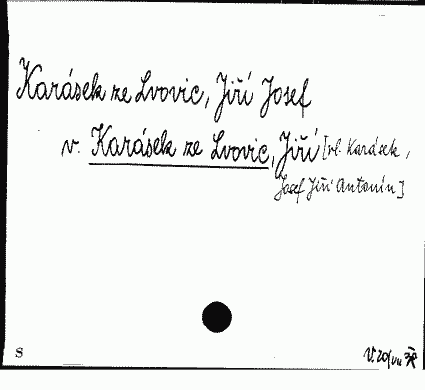 Karásek ze Lvovic, Jiří Josef
v. Karásek ze Lvovic, Jiří [vl. Karásek,
Josef Jiří Antonín]
S